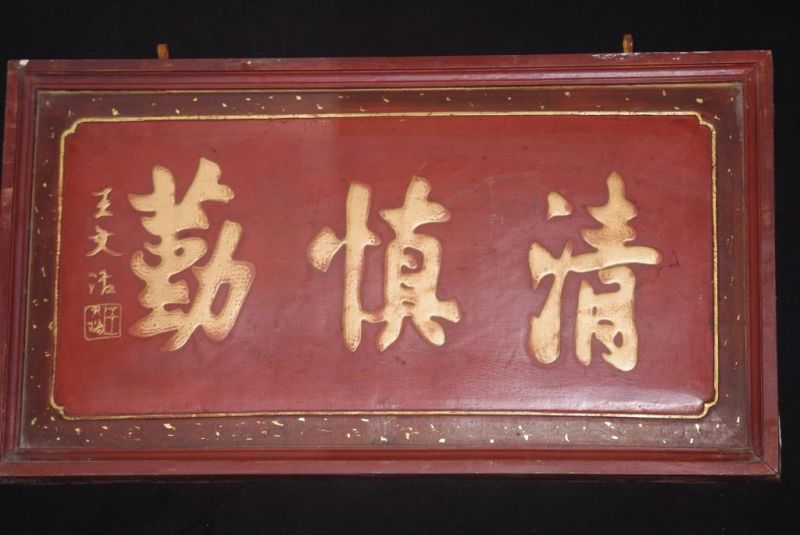 清慎勤
王文浩